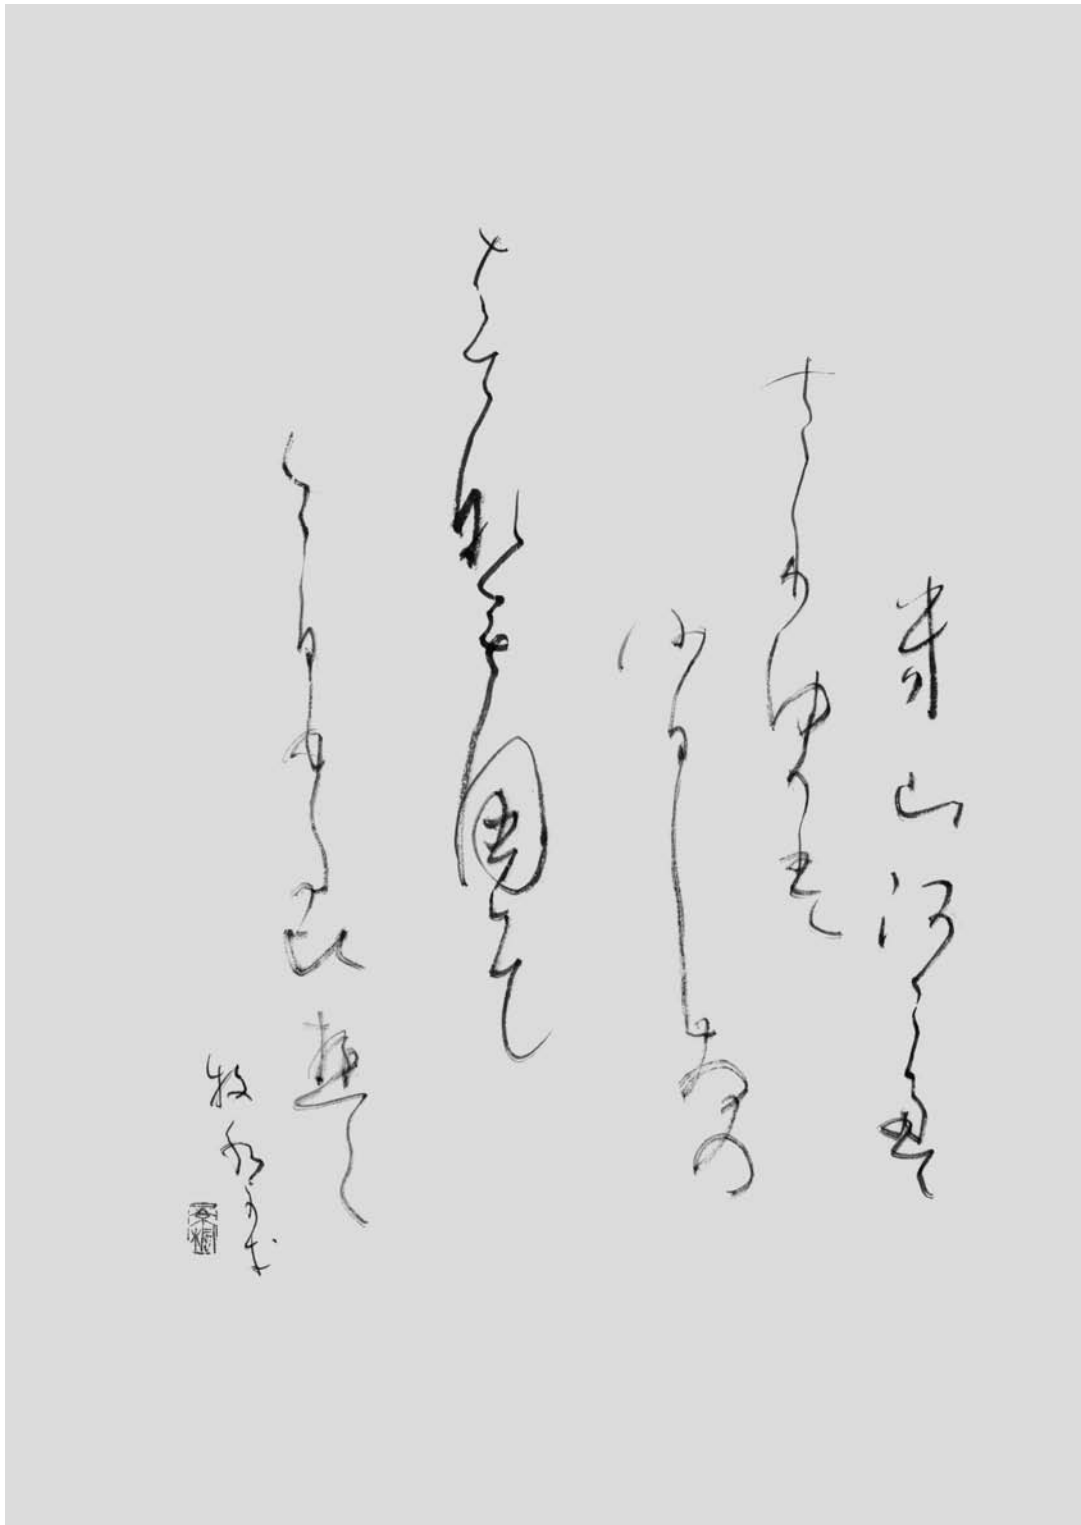 幾山河こえ
さりゆかば
さびしさの
はてなむ国ぞ
けふもたび遊く
牧水うた